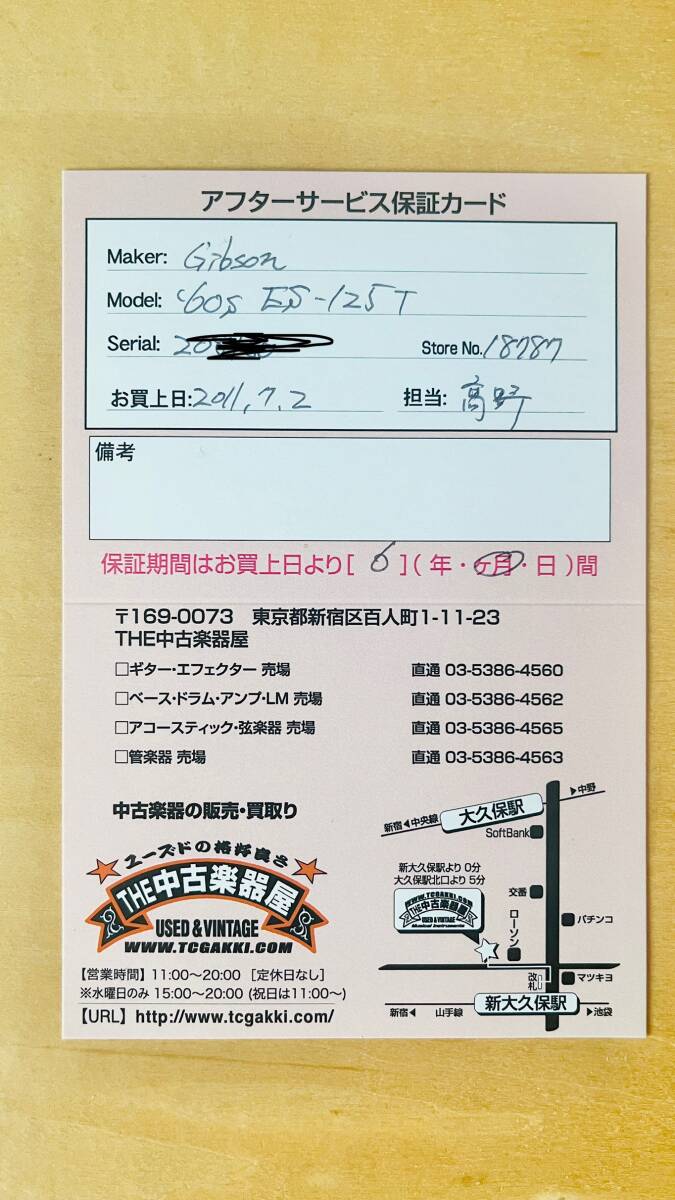 アフターサービス保証カード
Maker: Gibson
Model: '60s ES-125T
Serial: 20
Store No. 18787
お買上日: 2011.7.2 担当: 高野
備考
保証期間はお買上日より[ 6 ](年・ヶ月・日)間
〒169-0073 東京都新宿区百人町1-11-23
THE中古楽器屋
□ギター・エフェクター 売場 直通 03-5386-4560
□ベース・ドラム・アンプ・LM 売場 直通 03-5386-4562
□アコースティック・弦楽器 売場 直通 03-5386-4565
□管楽器 売場 直通 03-5386-4563
中古楽器の販売・買取り
ユーズドの格好良さ
THE中古楽器屋
USED & VINTAGE
WWW.TCGAKKI.COM
【営業時間】11:00〜20:00 [定休日なし]
※水曜日のみ 15:00〜20:00 (祝日は11:00〜)
【URL】http://www.tcgakki.com/
▶中野
大久保駅
新宿◀中央線
SoftBank
新大久保駅より 0分
大久保駅北口より 5分
交番
WWW.TCGAKKI.COM
THE中古楽器屋
USED & VINTAGE
Musical Instruments
ローソン
パチンコ
改札
マツキヨ
新大久保駅
新宿◀ 山手線 ▶池袋